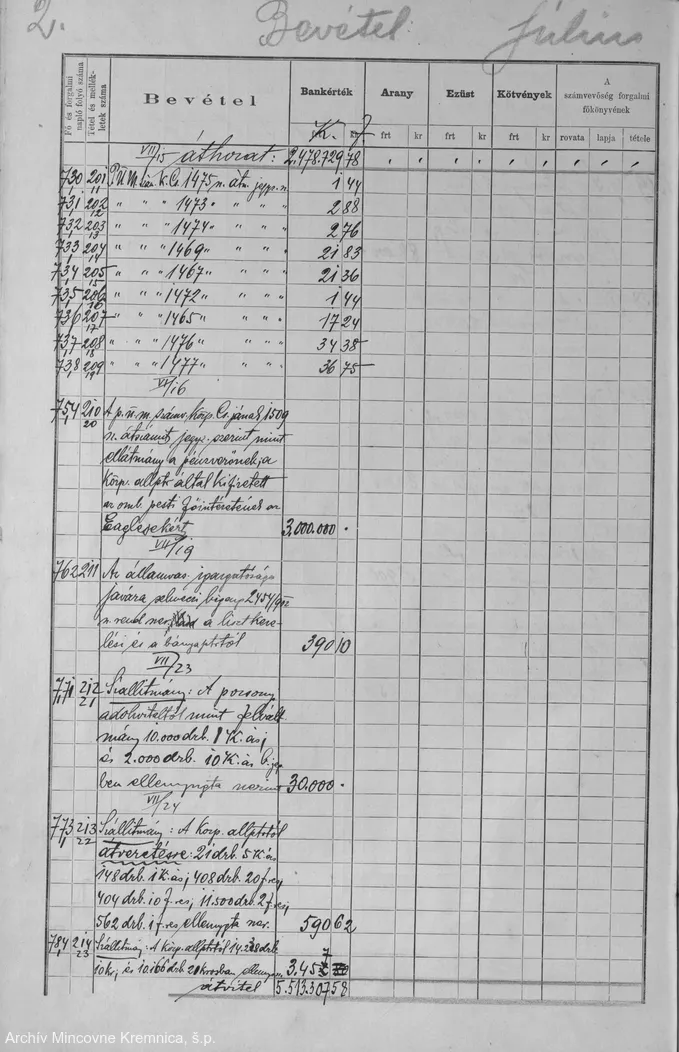 2.
Bevétel
Július
Fő és forgalmi napló folyó száma
Tétel és mellékletek száma
Bevétel
Bankérték
Arany
Ezüst
Kötvények
A számvevőség forgalmi főkönyvének
K. f
frt kr frt kr frt kr rovata lapja tétele
VII/15 áthozat: 2,478.729 78
730 201 11 P.Ü.M. K. Cs. 1475 n. átu. jegyz. n. 1 44
731 202 12 " " " 1473 " " " " 2 88
732 203 13 " " " 1474 " " " " 2 76
733 204 14 " " " 1469 " " " " 21 83
734 205 15 " " " 1467 " " " " 21 36
735 206 16 " " " 1472 " " " " 1 44
736 207 17 " " " 1465 " " " " 17 24
737 208 18 " " " 1476 " " " " 34 38
738 209 19 " " " 1477 " " " " 36 75
VII/16
754 210 20 A p. ü. m. számv. közp. Cs. jának 1509
n. átszámít. jegyz. szerint mint
ellátmány a pénzverőnek, a
közp. állpt. által kifizetett
pesti főintézetének
Eaglesekért 3,000.000 .
VII/19
762 211 Az államvas. igazgatósága
javára selmeczi 2454/912
n. rend. a lisztkeze-
lési és a bányapttól 390 10
VII/23
771 212 21 Szállítmány: A pozsony
adóhivataltól mint
mány 10.000 drb. 1 K. ás;
és 2.000 drb. 10 K. ás
ben ellennyugta szerint 30.000 .
VII/24
773 213 22 Szállítmány: A közp. állpttól
átveretésre: 21 drb. 5 K. ás
148 drb. 1 K. ás; 408 drb. 20 f. es;
404 drb. 10 f. es; 11.500 drb. 2 f. es;
562 drb. 1 f. es, ellennygta szer. 590 62
784 214 23 Szállítmány: A közp. állpttól drb
10 kr; és 10.166 drb. 20 krosban ellenny. 3.457
átvitel 5.513.307 58
Archív Mincovne Kremnica, š.p.